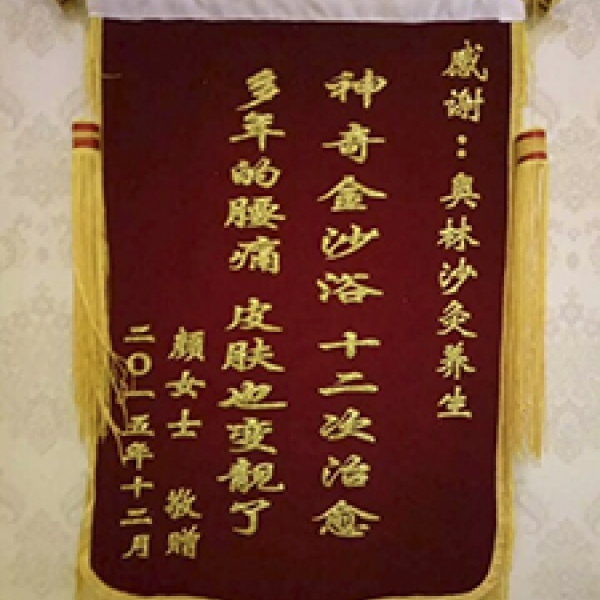 感谢：奥林沙灸养生
神奇金沙浴 十二次治愈
多年的腰痛 皮肤也变靓了
颜女士 敬赠
二〇一五年十二月